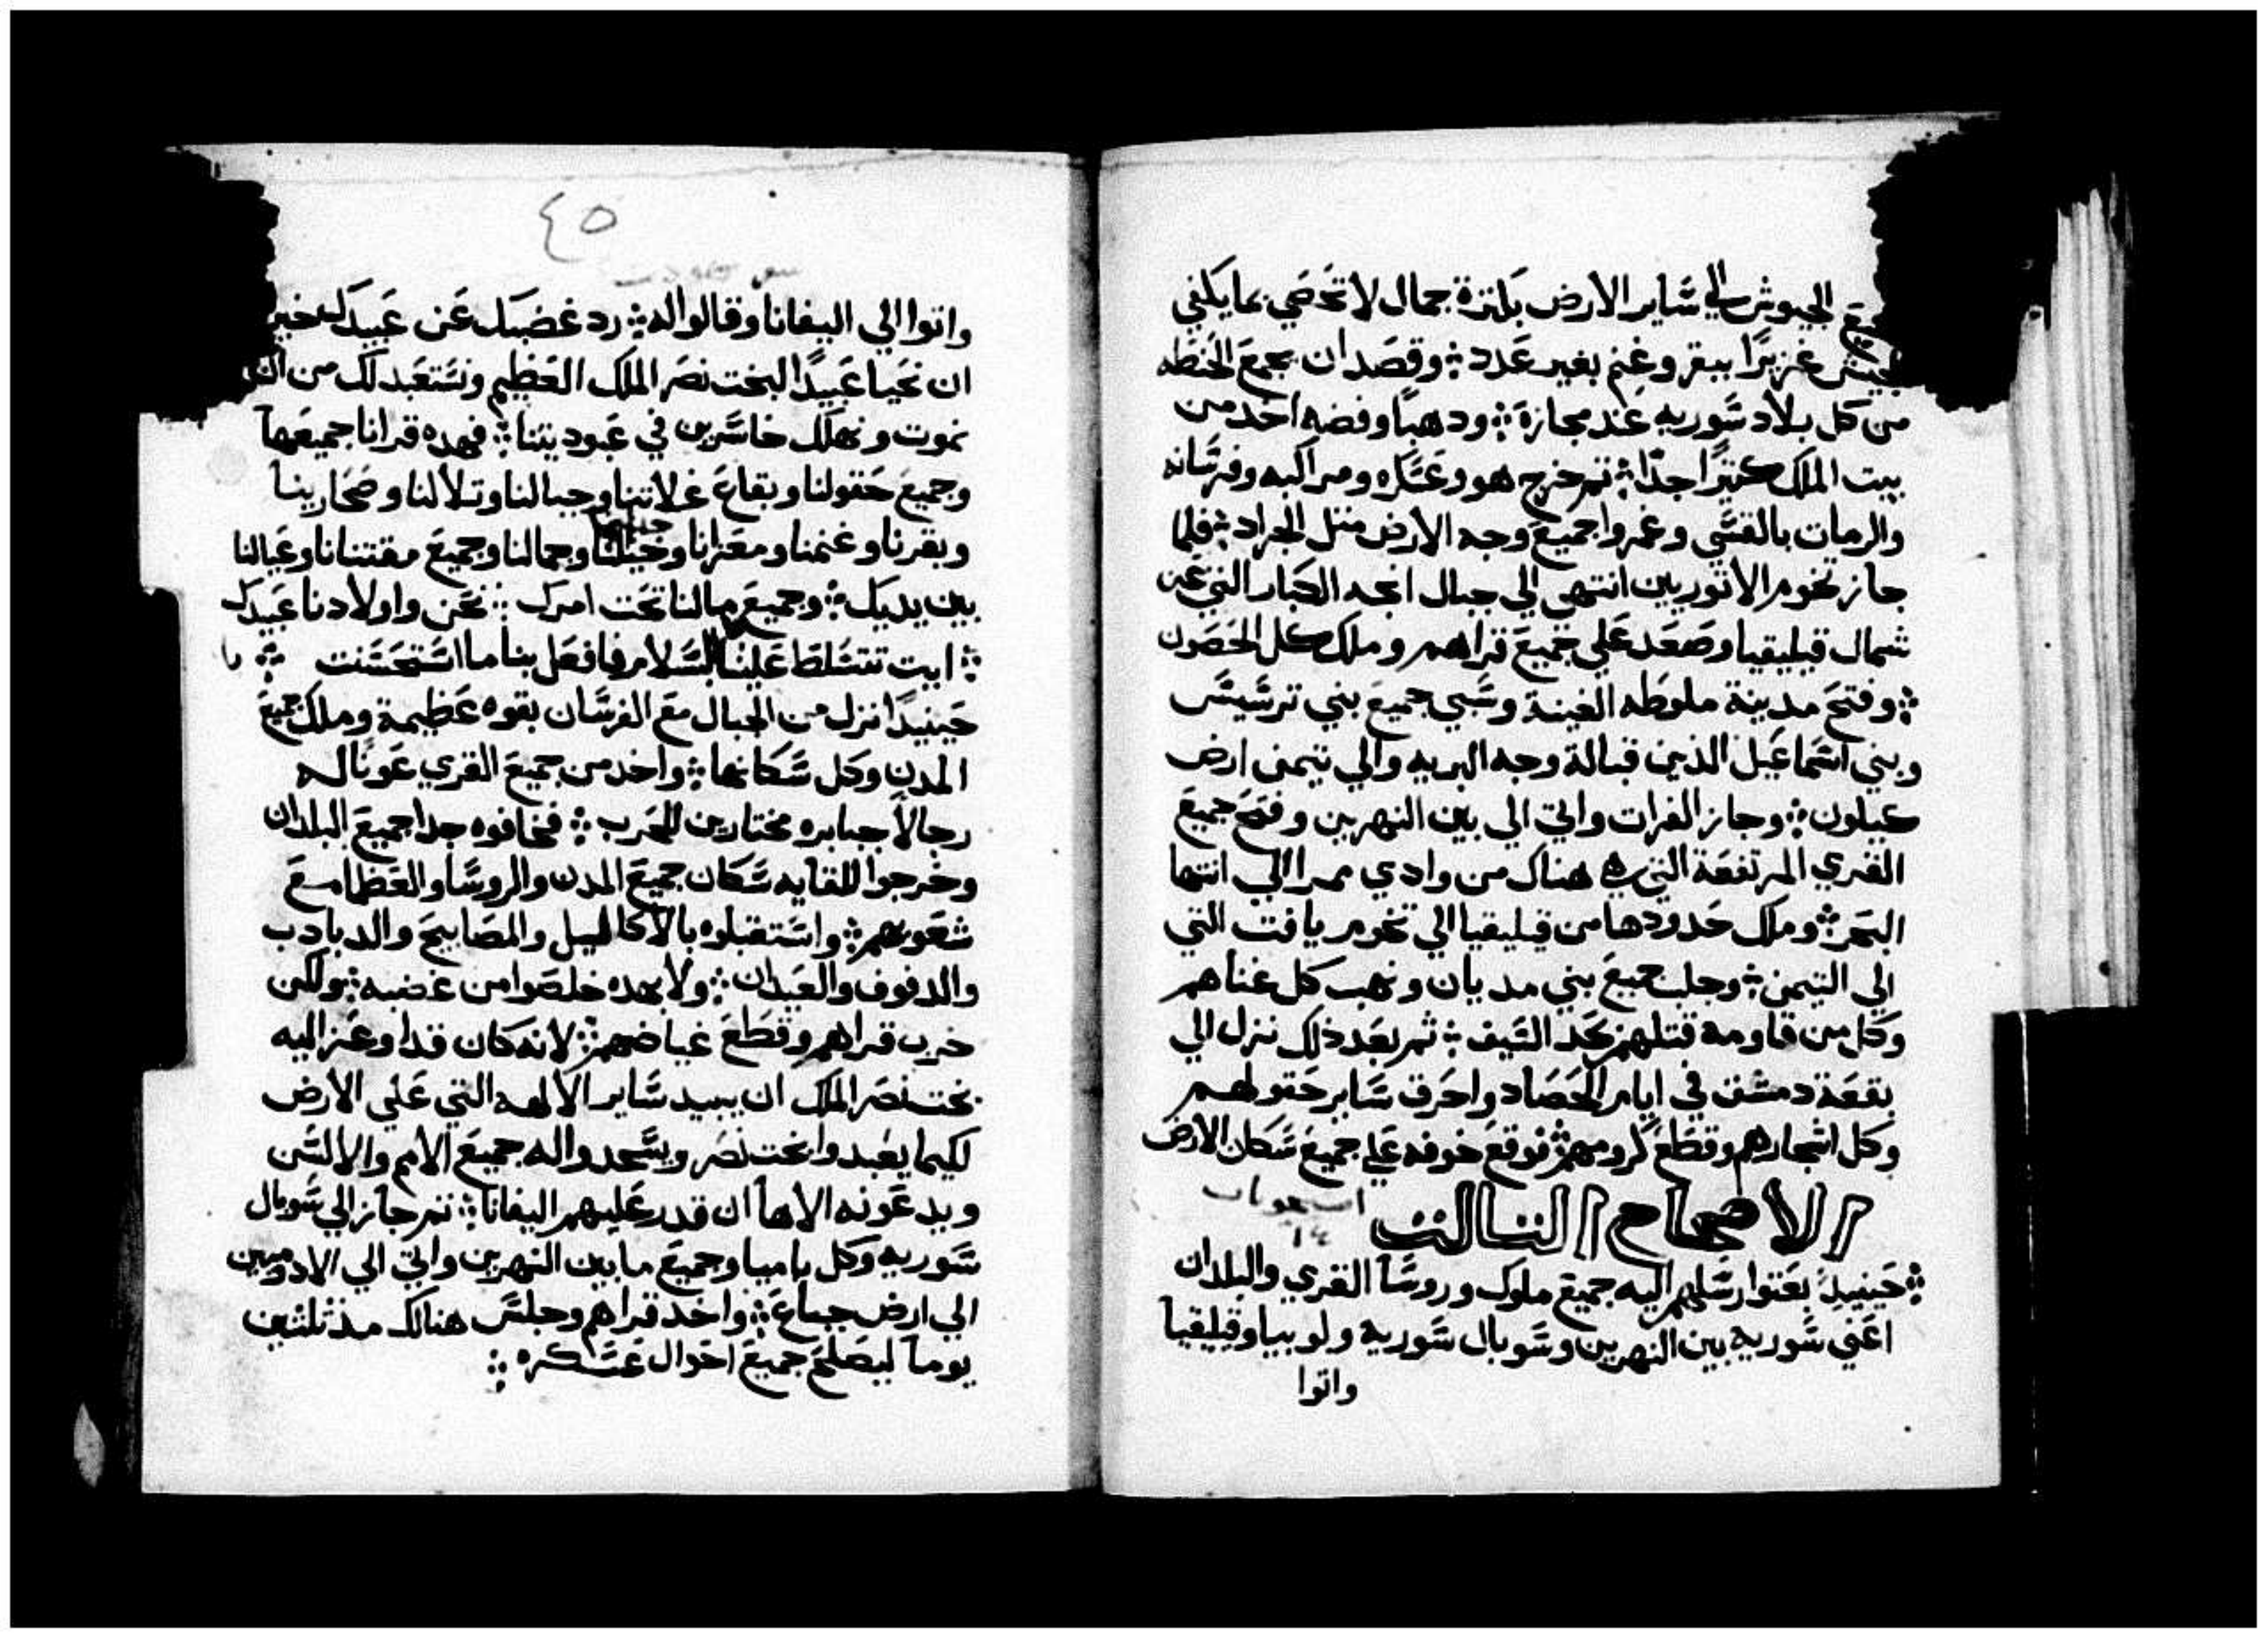 الجيوش الي سَاير الارض بكترة جمال لا تحصي بما يكفي
غزيرًا ببقر وغنم بغير عدد وقصد ان يجمع الحنطه
من كل بلاد سَوريه عند مجازة ودهبًا وفضه اخد من
بيت الملك كتيرًا جدًا تم خرج هو وعسَكره ومراكبه وفرسَانه
والرمات بالقسَي وغمروا جميع وجه الارض متل الجراد فلما
جاز تخوم الاتوريين انتهي الي جبال انجه الكبار التي عن
شمال قيليقيا وصعد علي جميع قراهم وملك كل الحصون
وفتح مدينة ملوطه الغينة وسَبي جميع بني ترسَيسَ
وبني اسَماعيل الذين قبالة وجه البريه والي تيمن ارض
عيلون وجاز الفرات واتي الي بين النهرين وفتح جميع
القري المرتفعة التي هناك من وادي ممرا الي انتها
البحر وملك حدودها من قيليقيا الي تخوم يافت التي
الي التيمن وجلب جميع بني مديان ونهب كل غناهم
وكل من قاومه قتلهم بحد السَيف ثم بعد ذلك نزل الي
بقعة دمشق في ايام الحصاد واحرق سَاير حقولهم
وكل اشجارهم وقطع كرومهم فوقع خوفه علي جميع سَكان الارض
الاصحاح التالت
حينيدٍ بعتوا رسَلهم اليه جميع ملوك وروسَا القري والبلدان
اعني سَورية بين النهرين وسَوبال سَورية ولوبيا وقيليقيا
واتوا
٤٥
واتوا الي اليفانا وقالوا له رد غضبك عن عبيدك خير
ان نحيا عبيدًا لبخت نصر الملك العظيم ونسَتعبد لك من ان
نموت ونهلك خاسَرين في عبوديتنا فهده قرانا جميعها
وجميع حقولنا وبقاع غلاتنا وجبالنا وتلالنا وصحارينا
وبقرنا وغنمنا ومعزانا وخيلنا وجمالنا وجميع مقتنانا وعيالنا
بين يديك وجميع مالنا تحت امرك نحن واولادنا عبيدك
ايت تتسَلط علينا بالسَلام فافعل بنا ما اسَتحسَنت
حينيدًا نزل من الجبال مع الفرسَان بقوه عظيمة وملك جميع
المدن وكل سَكانها واخد من جميع القري عونًا له
رجالاً جبابره مختارين للحرب فخافوه جدا جميع البلدان
وخرجوا للقايه سَكان جميع المدن والروسَا والعظما مع
شعوبهم واسَتقبلوه بالاكاليل والمصابيح والدبادب
والدفوف والعيدان ولا بهده خلصوا من غضبه ولكن
خرب قراهم وقطع غياضهم لانه كان قد اوعز اليه
بخت نصر الملك ان يبيد سَاير الالهه التي علي الارض
لكيما يعبدوا بخت نصر ويسَجدوا له جميع الامم والالسَن
ويدعونه الاها ان قدر عليهم اليفانا تم جاز الي سَوبال
سَوريه وكل باميا وجميع ما بين النهرين واتي الي الادوميين
الي ارض جبعاع واخد قراهم وجلسَ هنالك مد تلتين
يوما ليصلح جميع احوال عسَكره